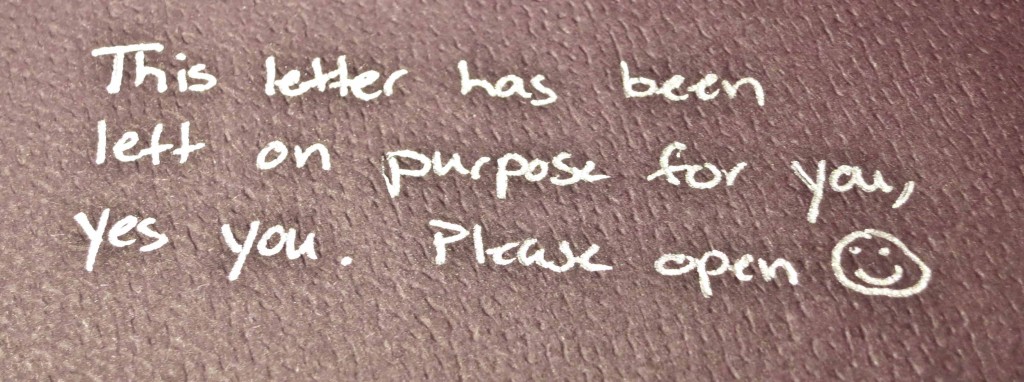 This letter has been
left on purpose for you,
yes you. Please open ☺